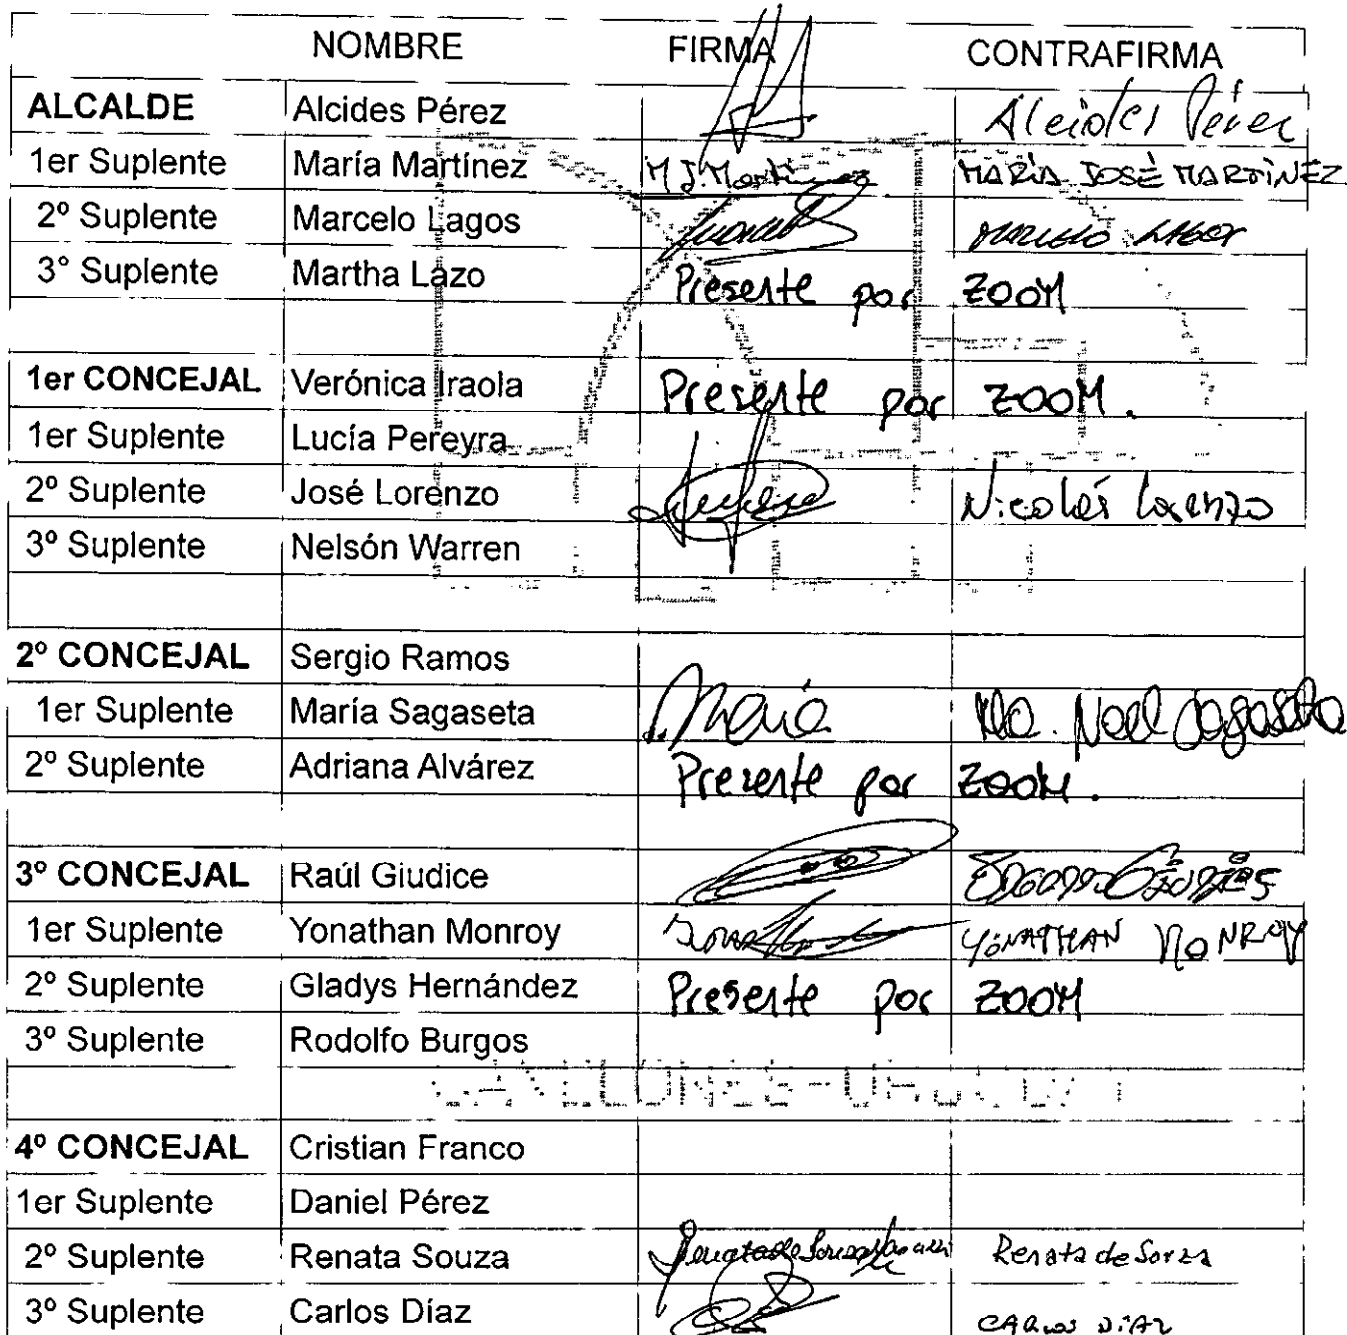 NOMBRE FIRMA CONTRAFIRMA
ALCALDE Alcides Pérez Alcides Pérez
1er Suplente María Martínez M J. Martínez MARÍA JOSÉ MARTÍNEZ
2º Suplente Marcelo Lagos MARCELO LAGOS
3° Suplente Martha Lazo Presente por ZOOM
1er CONCEJAL Verónica Iraola Presente por ZOOM.
1er Suplente Lucía Pereyra
2º Suplente José Lorenzo Nicolás Lorenzo
3º Suplente Nelsón Warren
2º CONCEJAL Sergio Ramos
1er Suplente María Sagaseta María Ma. Noel Sagaseta
2º Suplente Adriana Alvárez Presente por ZOOM.
3º CONCEJAL Raúl Giudice
1er Suplente Yonathan Monroy YONATHAN MONROY
2º Suplente Gladys Hernández Presente por ZOOM
3º Suplente Rodolfo Burgos
4º CONCEJAL Cristian Franco
1er Suplente Daniel Pérez
2º Suplente Renata Souza Renata de Souza
3º Suplente Carlos Díaz CARLOS DÍAZ